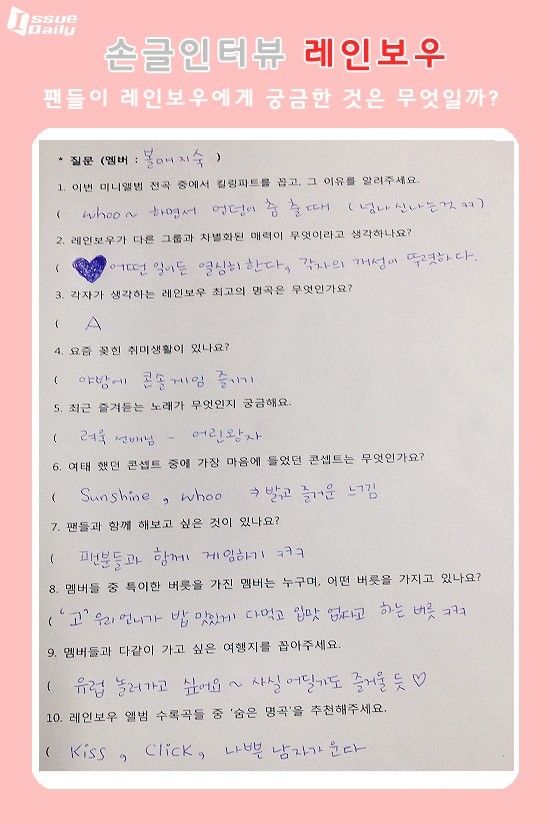 Issue
Daily
손글인터뷰 레인보우
팬들이 레인보우에게 궁금한 것은 무엇일까?
* 질문 (멤버 : 볼매지숙 )
1. 이번 미니앨범 전곡 중에서 킬링파트를 꼽고, 그 이유를 알려주세요.
( whoo~ 하면서 엉덩이 춤 출 때 ( 넘나 신나는것 ㅋㅋ)
2. 레인보우가 다른 그룹과 차별화된 매력이 무엇이라고 생각하나요?
( 어떤 일이든 열심히 한다, 각자의 개성이 뚜렷하다.
3. 각자가 생각하는 레인보우 최고의 명곡은 무엇인가요?
( A
4. 요즘 꽂힌 취미생활이 있나요?
( 야밤에 콘솔게임 즐기기
5. 최근 즐겨듣는 노래가 무엇인지 궁금해요.
( 려욱 선배님 - 어린왕자
6. 여태 했던 콘셉트 중에 가장 마음에 들었던 콘셉트는 무엇인가요?
( Sunshine , whoo ⇒ 밝고 즐거운 느낌
7. 팬들과 함께 해보고 싶은 것이 있나요?
( 팬분들과 함께 게임하기 ㅋㅋㅋ
8. 멤버들 중 특이한 버릇을 가진 멤버는 누구며, 어떤 버릇을 가지고 있나요?
( "고" 우리언니가 밥 맛있게 다먹고 입맛 없다고 하는 버릇 ㅋㅋㅋ
9. 멤버들과 다같이 가고 싶은 여행지를 꼽아주세요.
( 유럽 놀러가고 싶어요 ~ 사실 어딜가도 즐거울 듯 ♡
10. 레인보우 앨범 수록곡들 중 '숨은 명곡'을 추천해주세요.
( Kiss , Click , 나쁜 남자가 운다